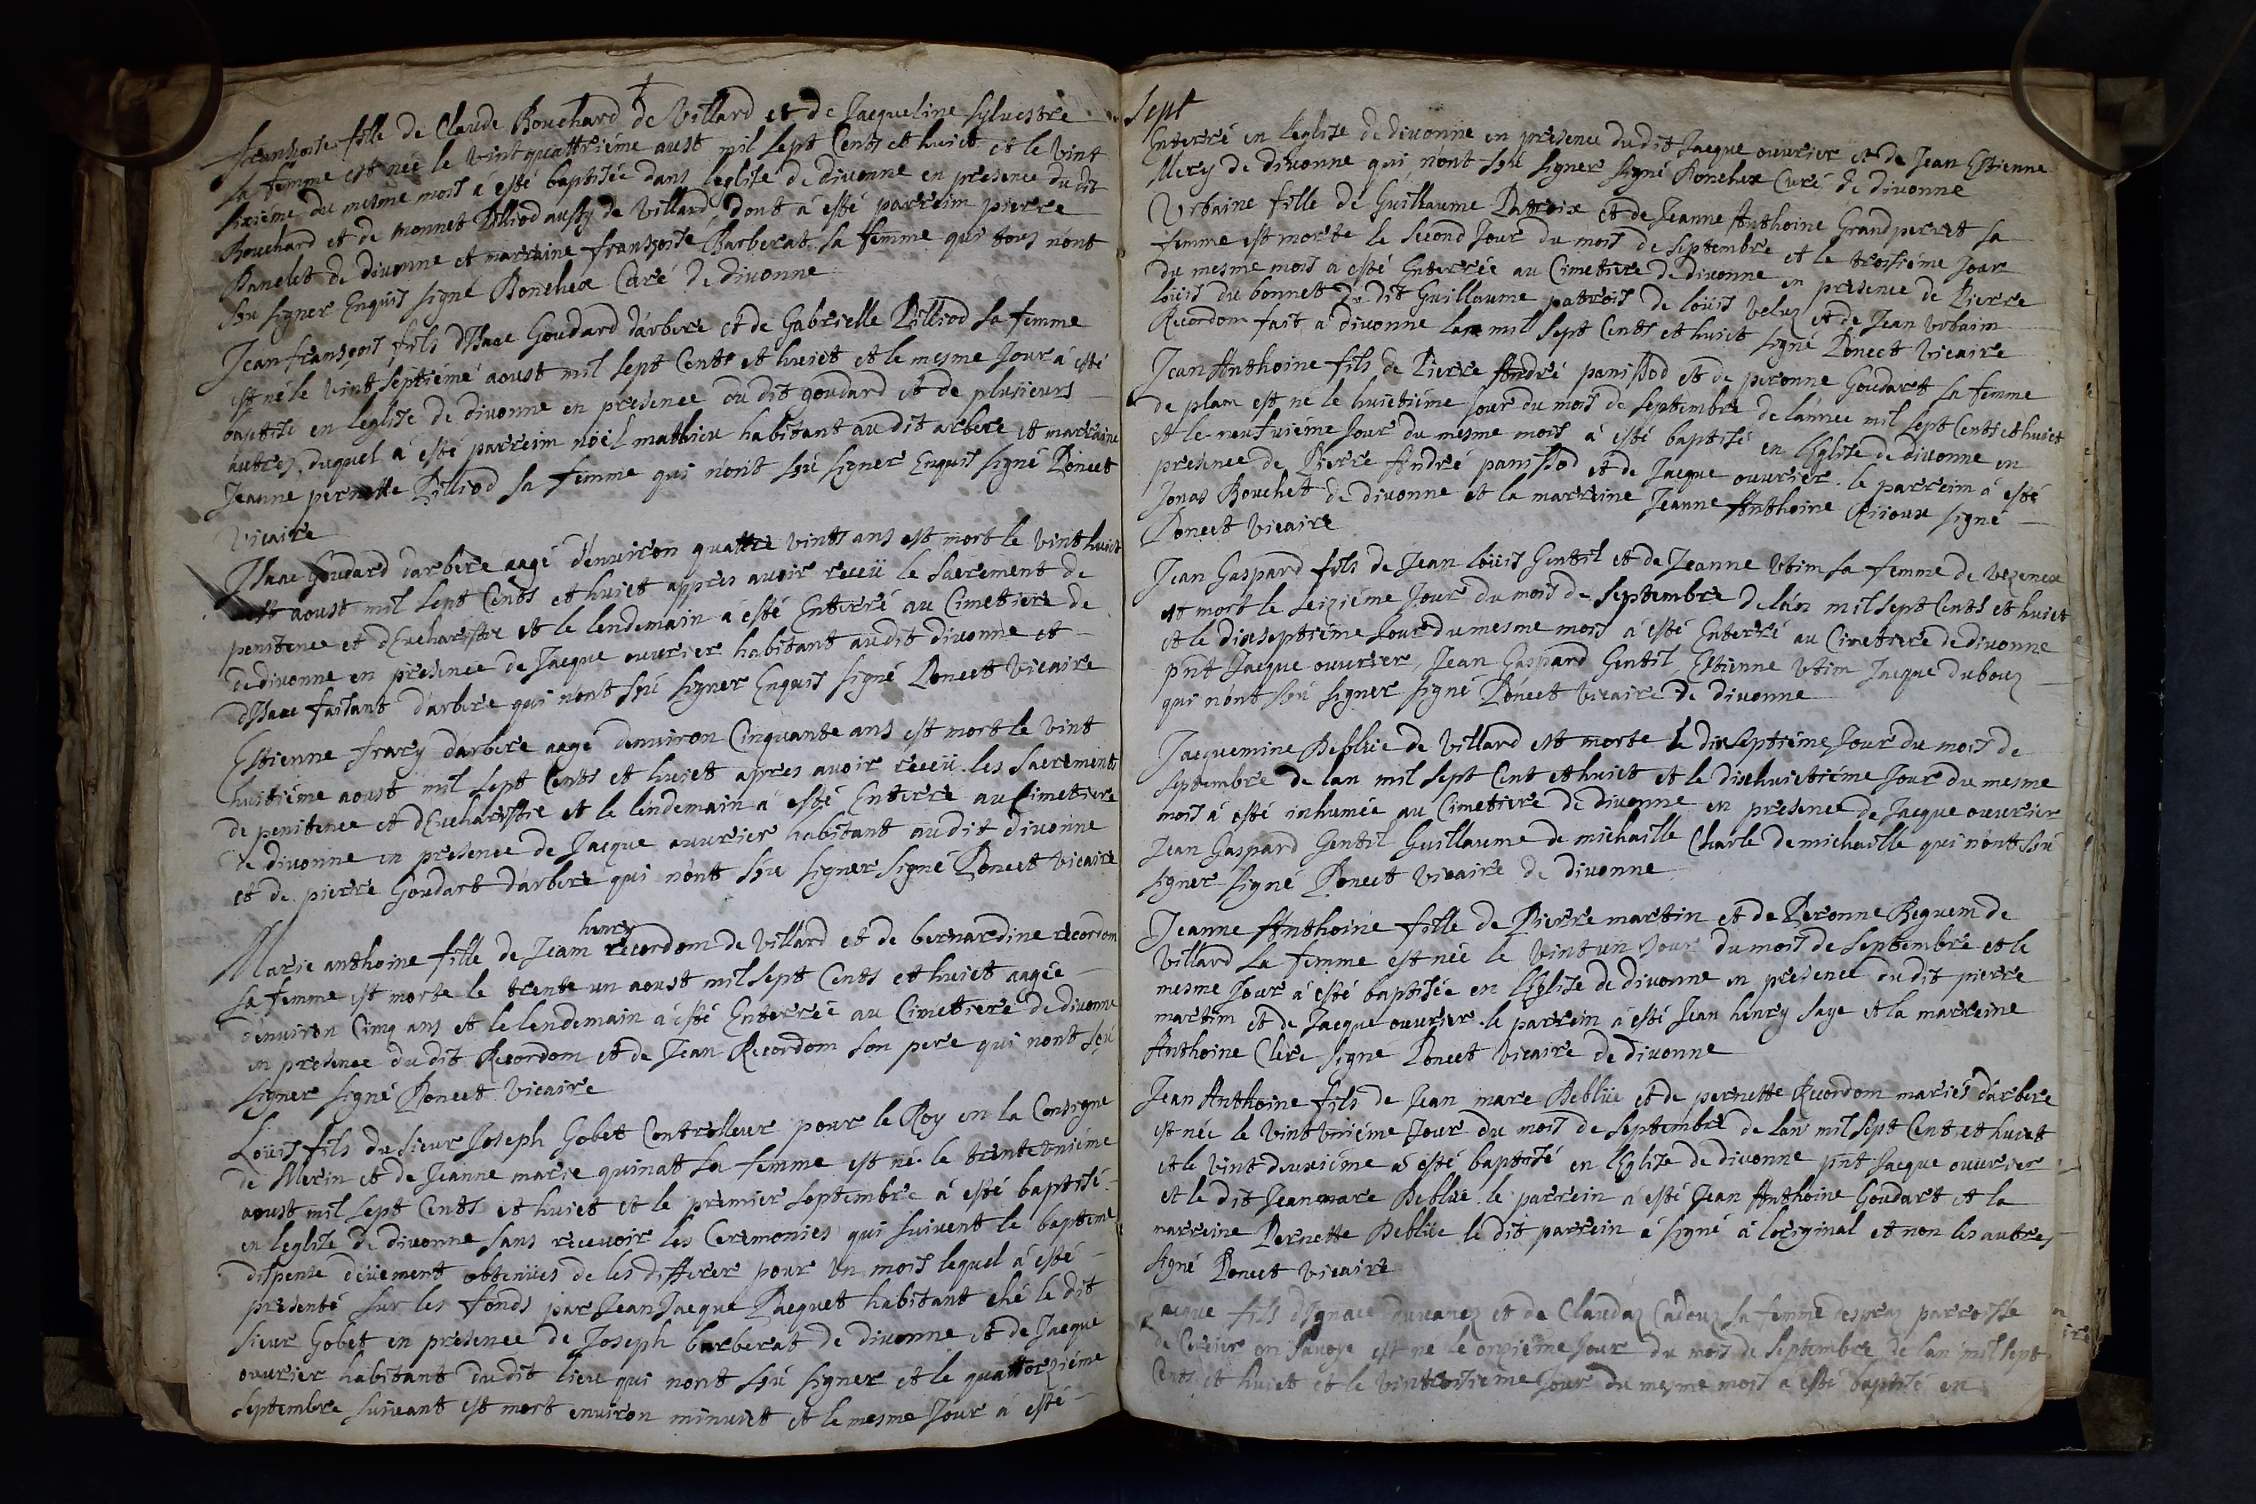 françoise fille de Claude Bouchard de Villard et de Jacqueline Sylvestre
sa femme est née le vint quattriéme aust mil sept Cents et huict et le vint
sixiéme du mesme mois á esté baptisée dans leglise de divonne en presence du dit
Bouchard et de monnet Pilliod aussy de Villard dont á esté parreim pierre
Panelet de divonne et marraine françoise Barberat sa femme qui tous nónt
sçu signer Enquis signé Bonchex Curé de divonne
Jean françois fils dIsaac Goudard dárbere et de Gabrielle Pilliod sa femme
est né le vint septiéme aoust mil sept Cents et huict et le mesme Jour á esté
baptisé en leglise de divonne en presence du dit goudard et de plusieurs
autres, duquel á esté parreim nóel mathieu habitant au dit arbere et marraine
Jeanne pernette Pilliod sa femme qui nónt sçú signer Enquis signé Poncet
Vicaire
Isaac Goudard dárbere aagé dénuiron quattre vints ans est mort le vint huict
aoust mil sept Cents et huict appres auoir receü le sacrement de
penitence et dEucharistie et le lendemain á esté Enterré au Cimetiere de
de divonne en presence de Jacque ouurier habitant audit divonne et
dIsaac faisant dárbere qui nónt sçú signer Enquis signé Poncet Vicaire
Estienne frary dárbere aagé denuiron Cinquante ans est mort le vint
huitiéme aoust mil sept Cents et huict apres auoir receü les sacrements
de penitence et dEucharistie et le lendemain á esté Enterré au Cimetiere
de divonne en presence de Jacque ouurier habitant audit divonne
et de pierre Goudart dárbere qui nónt sçu signer signé Poncet Vicaire
henry
Marie anthoine fille de Jean recordom de Villard et de bernardine recordom
sa femme est morte le trente un aoust mil sept Cents et huict aagée
dénuiron Cinq ans et le lendemain á esté Enterrée au Cimettiere de divonne
en presence du dit Recordom et de Jean Recordom son pere qui nont sçú
signer signé Poncet Vicaire
Loüis fils du sieur Joseph Gobet Controlleur pour le Roy en la Consigne
de Merin et de Jeanne marie quinat sa femme est né le trente vniéme
aoust mil sept Cents et huict et le premier septembre á esté baptisé
en leglise de divonne sans recevoir les Ceremonies qui suivent le baptême
dispense düement obtenües de les differer pour vn mois lequel á esté
presenté sur les fonds par Jean Jacque Pacquet habitant ché le dit
sieur Gobet en presence de Joseph barberat de divonne et de Jacque
ouurier habitant du dit lieu qui nónt sçú signer et le quattorziéme
septembre suiuant est mort enuiron minuict et le mesme Jour á esté
sept
Enterré en leglise de divonne en presence du dit Jacque ouurier et de Jean Estienne
Mery de divonne qui nónt sçú signer signé Bonchex Curé de divonne
Vrbaine fille de Guilliaume Patroix et de Jeanne Anthoine Grandperret sa
femme est morte le second Jour du mois de septembre et le troisiéme Jour
du mesme mois a esté Enterrée au Cimetiere de divonne en presence de Pierre
loüis du bonnet du dit Guillaume patrois de loüis veluz et de Jean vrbaim
Recordom fait a divonne lan mil sept Cents et huict signé Poncet Vicaire
Jean Anthoine fils de Pierre André panissod et de peronne Goudart sa femme
de plan est né le huictiéme Jour du mois de septembre de lánnée mil sept Cents et huict
et le neufuiéme Jour du mesme mois á esté baptisé en lEglise de divonne en
presence de Pierre André panissod et de Jacque ouurier. le parreim á esté
Jonas Bouchet de divonne et la marreine Jeanne Anthoine signé
Poncet Vicaire
Jean Gaspard fils de Jean loüis Gentil et de Jeanne Vtim sa femme de vezenex
est mort le seiziéme Jour du mois de septembre de lán mil sept Cents et huict
et le dixseptiéme Jour du mesme mois á esté Enterré au Cimetiere de divonne
pńt Jacque ouurier, Jean Gaspard Gentil, Estienne Vtim Jacque dubouz
qui nónt sçú signer signé Poncet Vicaire de divonne
Jacquemine Deblüe de Villard est morte le dixseptiéme Jour du mois de
septembre de lan mil sept Cent et huict et le dixhuictiéme Jour du mesme
mois á esté inhumée au Cimetiere de divonne en presence de Jacque ouurier
Jean Gaspard Gentil Guillaume de michaille Charle de michaille qui nónt sçú
signer signé Poncet Vicaire de divonne
Jeanne Anthoine fille de Pierre martin et de Peronne Beguem de
Villard sa femme est née le vint un Jour du mois de septembre et le
mesme Jour á esté baptisée en lEglise de divonne en presence du dit pierre
martim et de Jacque ouurier. le parrein á esté Jean henry saye et la marreine
Anthoine Clere signé Poncet Vicaire de divonne
Jean Anthoine fils de Jean marc Deblüe et de pernette Recordom mariés dárbere
est née le vint vniéme Jour du mois de septembre de lan mil sept Cent et huict
et le vint deuxiéme á esté baptisé en lEglise de divonne pńt Jacque ouurier
et le dit Jean marc Deblüe. le parrein á esté Jean Anthoine Goudart et la
marreine Pernette Deblüe le dit parrein á signé á loriginal et non les autres
signé Poncet Vicaire
Jacque fils dIgnace duvanez et de Claudaz Cadouz sa femme parroisse
de en savoye est né le onziéme Jour du mois de septembre de lan mil sept
Cents et huict et le Jour du mesme mois a esté baptisé en